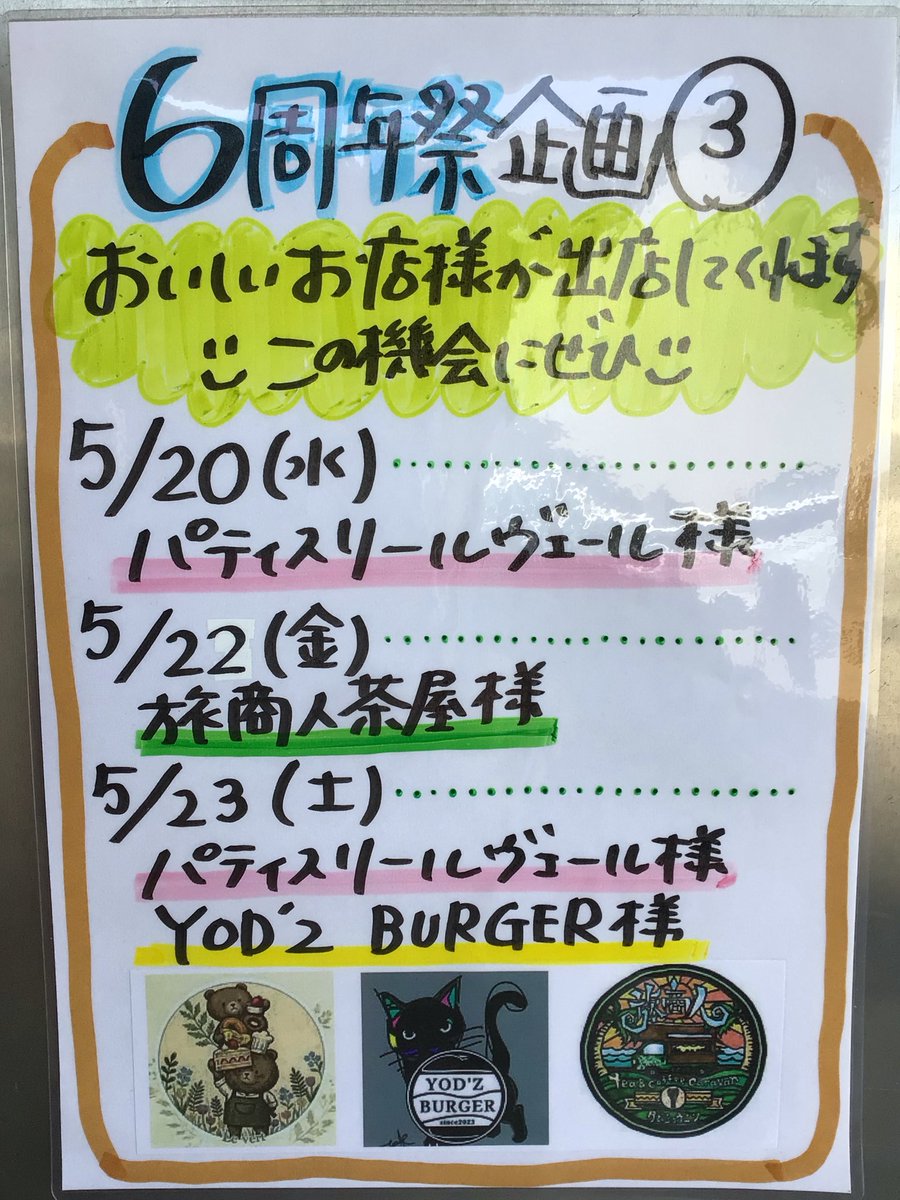 6周年祭企画③
おいしいお店様が出店してくれます
この機会にぜひ
5/20(水)
パティスリールヴェール様
5/22(金)
旅商人茶屋様
5/23(土)
パティスリールヴェール様
YOD'z BURGER様
YOD'Z
BURGER
since2023
旅商人
Tea & Coffee Caravan